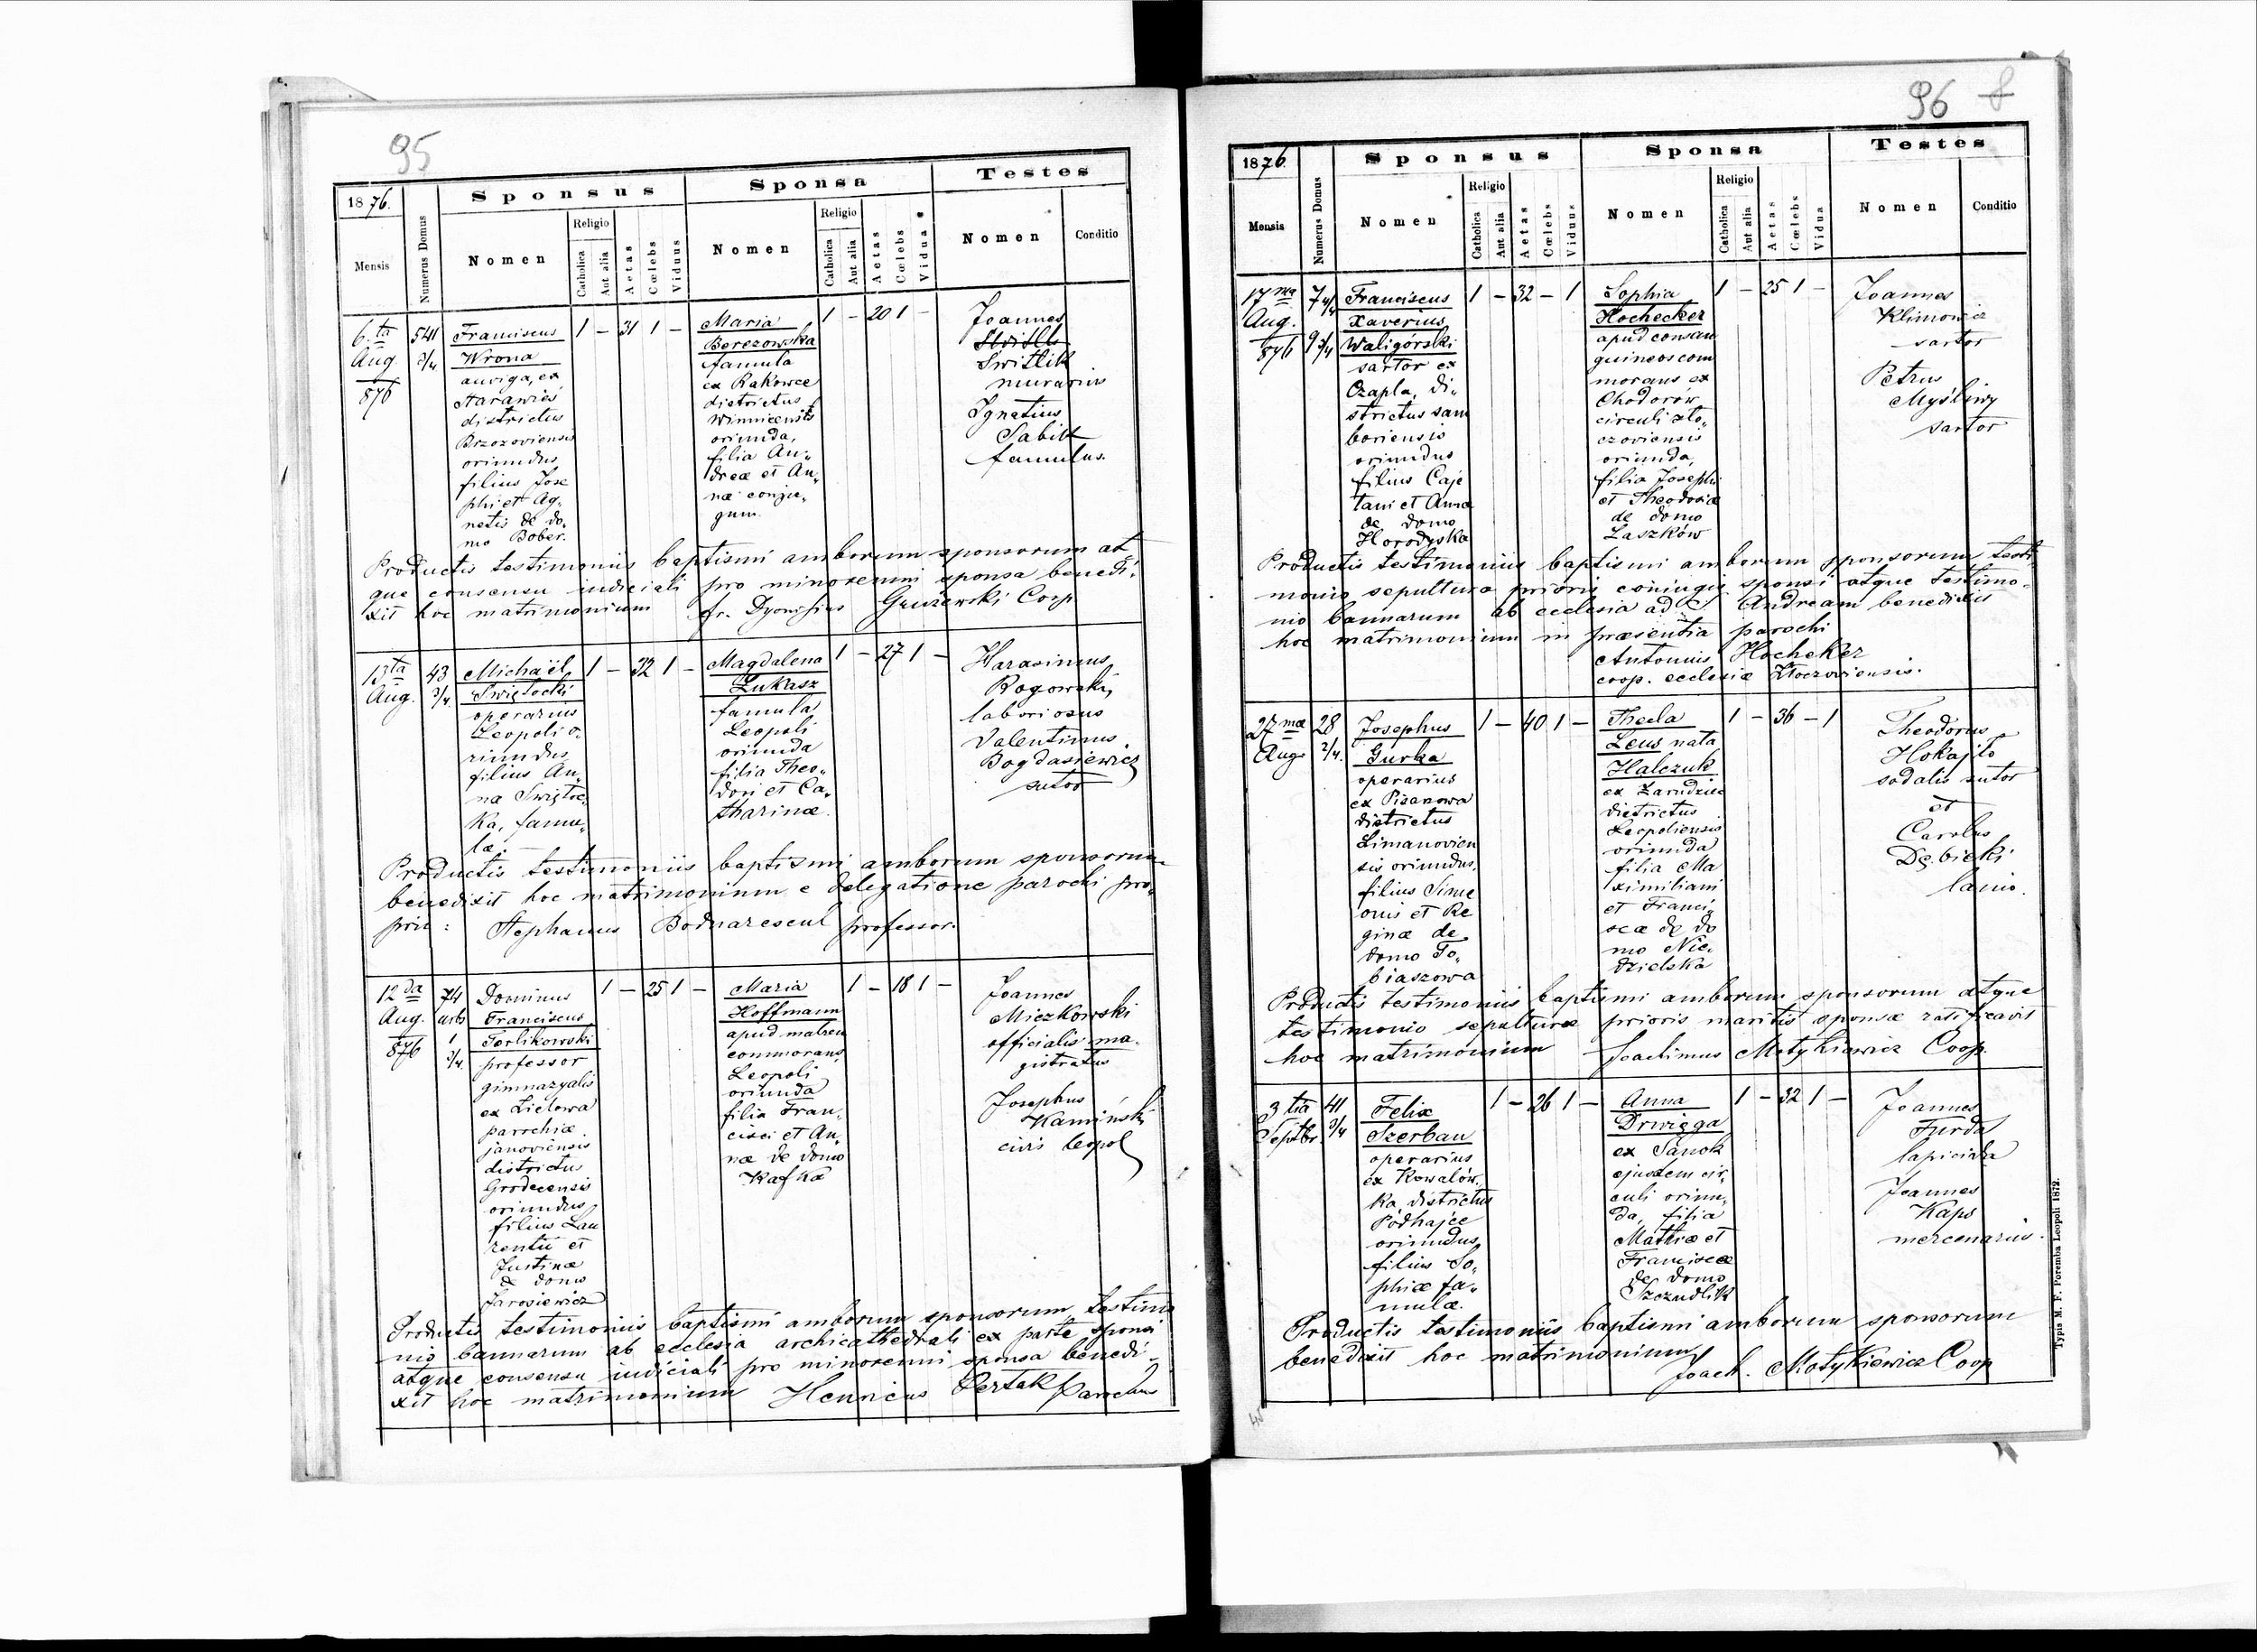 95
1876.
Mensis
Numerus Domus
Sponsus
Nomen
Religio
Catholica
Aut alia
Aetas
Cœlebs
Viduus
Sponsa
Nomen
Religio
Catholica
Aut alia
Aetas
Cœlebs
Vidua
Testes
Nomen
Conditio
6ta
Aug.
876
541
3/4
Franciscus
Wrona
auriga, ex
Starawieś
districtus
Brzozoviensis
oriundus
filius Jose
phi et Ag„
netis de do„
mo Bober.
1 – 31 1 –
Maria
Berezowska
famula
ex Rakowce
districtus
Winnicensis
oriunda,
filia An„
dreæ et An„
næ conju„
gum.
1 – 20 1 –
Joannes
Switlik
murarius
Ignatius
Sabikt
famulus.
Productis testimoniis baptismi amborum sponsorum at„
que consensu iudiciali pro minorenni sponsa benedi„
xit hoc matrimonium fr. Dyonisius Gruszewski Coop
13ta
Aug.
43
3/4
Michaël
Swiętocki
operarius
Leopoli o„
riundus
filius An„
næ Swiętoc„
ka, famu„
læ.
1 – 32 1 –
Magdalena
Łukasz
famula
Leopoli
oriunda
filia Theo„
dori et Ca„
tharinæ.
1 – 27 1 –
Harasimus
Rogowski,
laboriosus
Valentinus
Bogdasiewicz
sutor
Productis testimoniis baptismi amborum sponsorum
benedixit hoc matrimonium e delegatione parochi pro„
prii: Stephanus Bodnarescul professor.
12da
Aug.
876
74
urbs
1
3/4
Dominus
Franciscus
Terlikowski
professor
gimnazyalis
ex Lielowa
parochiæ
janoviensis
districtus
Grodecensis
oriundus
filius Lau
rentii et
Justinæ
de domo
Jarosiewicz
1 – 25 1 –
Maria
Hoffmann
apud matrem
commorans
Leopoli
oriunda
filia Fran„
cisci et An„
næ de domo
Kafka
1 – 18 1 –
Joannes
Mieczkowski
officialis ma„
gistratus
Josephus
Kamiński
civis leopol
Productis testimoniis baptismi amborum sponsorum, testimo
nio bannarum ab ecclesia archicathedrali ex parte sponsi
atque consensu iudiciali pro minorenni sponsa benedi„
xit hoc matrimonium Henricus Pertak Parochus
96 8
1876.
Mensis
Numerus Domus
Sponsus
Nomen
Religio
Catholica
Aut alia
Aetas
Cœlebs
Viduus
Sponsa
Nomen
Religio
Catholica
Aut alia
Aetas
Cœlebs
Vidua
Testes
Nomen
Conditio
17ma
Aug.
876
7 4/4
9 3/4
Franciscus
Xaverius
Waligórski
sartor ex
Czapla, di„
strictus sam
boriensis
oriundus
filius Caje
tani et Annæ
de domo
Horodyska
1 – 32 – 1
Sophia
Hochecker
apud consan
guineos com
morans ex
Chodorów
circuli zło„
czoviensis
oriunda,
filia Josephi
et Theodosiæ
de domo
Laszków
1 – 25 1 –
Joannes
Klimowicz
sartor
Petrus
Myśliwy
sartor
Productis testimoniis baptismi amborum sponsorum testi„
monio sepulturæ prioris coniugis sponsi atque testimo„
nio bannarum ab ecclesia ad S. Andream benedixit
hoc matrimonium in præsentia parochi
Antonius Hocheker
coop. ecclesiæ Złoczoviensis.
27mæ
Aug.
28
2/4.
Josephus
Gurka
operarius
ex Pisanowa
districtus
Limanovien
sis oriundus,
filius Sime
onis et Re
ginæ de
domo To„
biaszowa
1 – 40 1 –
Thecla
Leus nata
Halczuk
ex Zarudzie
districtus
Leopoliensis
oriunda
filia Ma
ximiliani
et Franci„
scæ de do
mo Nie„
dzielska
1 – 36 – 1
Theodorus
Hokajło
sodalis sutor
et
Carolus
Dębicki
lanio.
Productis testimoniis baptismi amborum sponsorum atque
testimonio sepulturæ prioris mariti sponsæ ratificavit
hoc matrimonium Joachimus Motykiewicz Coop.
3tia
Septbr.
41
3/4
Felix
Szerban
operarius
ex Kowalów„
ka, districtus
Podhajce
oriundus,
filius So„
phiæ fa„
mulæ.
1 – 26 1 –
Anna
Drwięga
ex Sanok
ejusdem cir„
culi oriun„
da, filia
Mathiæ et
Franciscæ
de domo
Szczudlik
1 – 32 1 –
Joannes
Furda
lapicida
Joannes
Kaps
mercenarius.
Productis testimoniis baptismi amborum sponsorum
benedixit hoc matrimonium
Joach. Motykiewicz Coop
Typis M. F. Poremba Leopoli 1872.